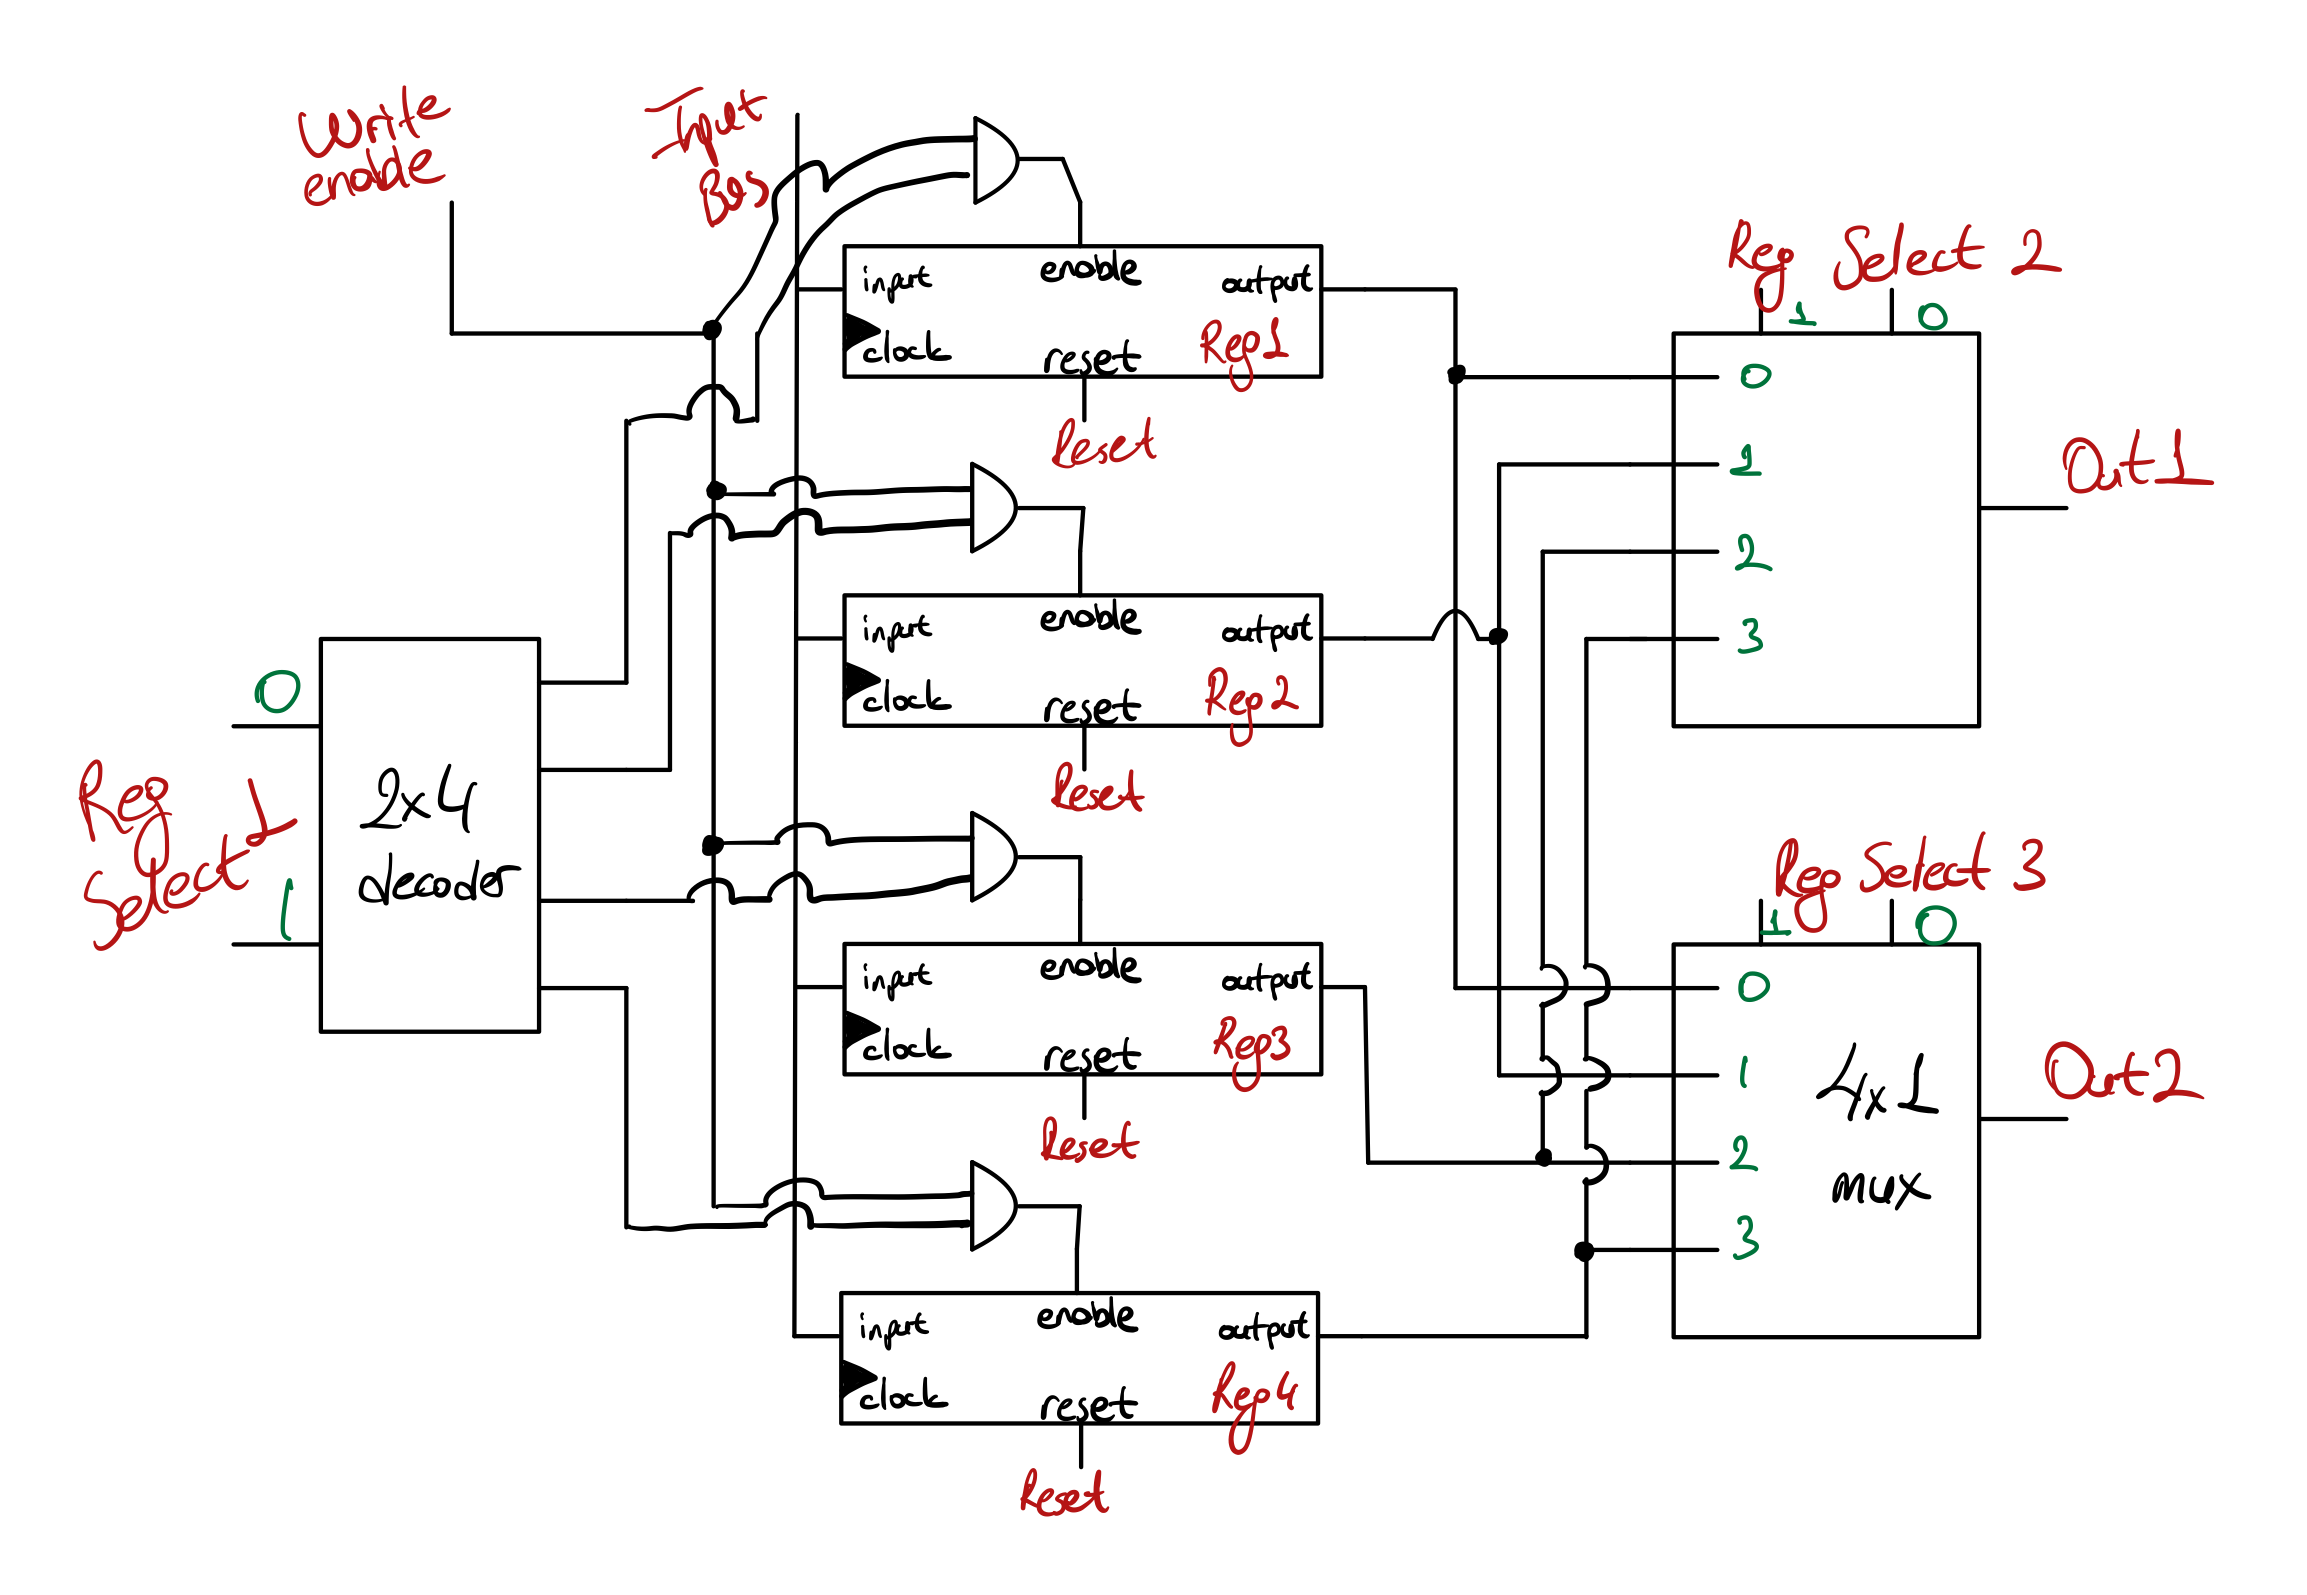 Write
enable
Input
Bus
input
enable
output
clock
reset
Reg1
Reset
input
enable
output
clock
reset
Reg2
Reset
input
enable
output
clock
reset
Reg3
Reset
input
enable
output
clock
reset
Reg4
Reset
0
Reg
Select 1
1
2x4
decoder
Reg Select 2
1
0
0
1
2
3
Out1
Reg Select 3
1
0
0
1
2
3
4x1
mux
Out2